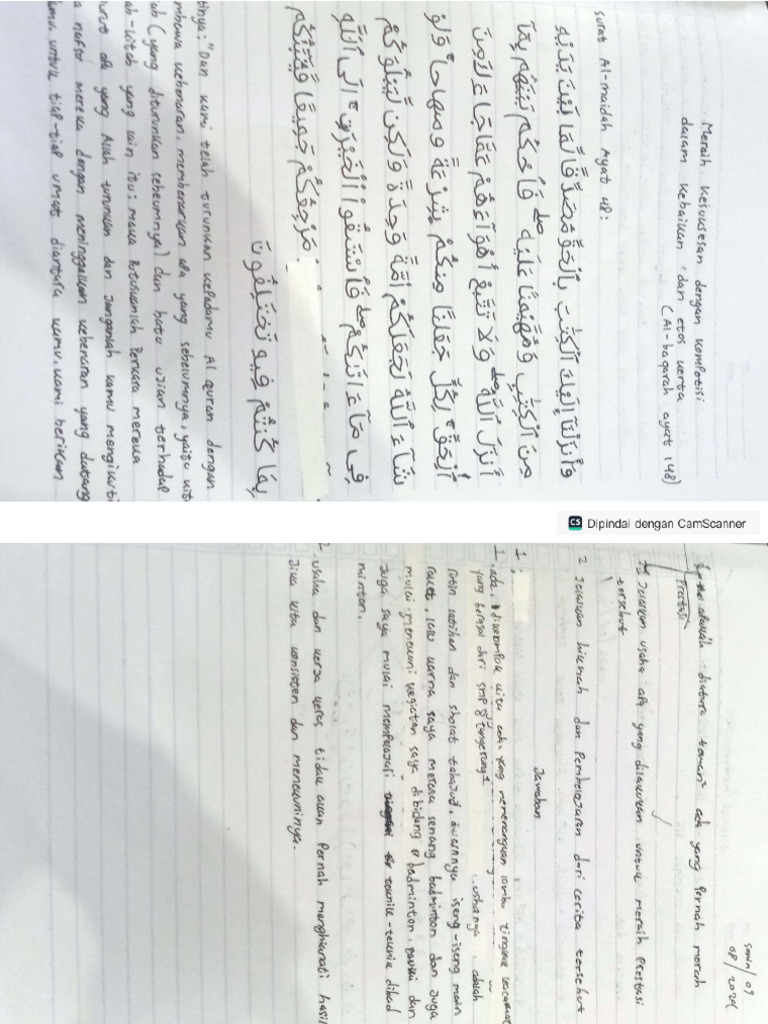 Meraih kesuksesan dengan kompetisi
dalam kebaikan dan etos kerta
(Al-baqarah ayat 148)
surat Al-maidah Ayat 48:
وَأَنْزَلْنَآ إِلَيْكَ الْكِتٰبَ بِالْحَقِّ مُصَدِّقًا لِّمَا بَيْنَ يَدَيْهِ
مِنَ الْكِتٰبِ وَمُهَيْمِنًا عَلَيْهِ فَاحْكُمْ بَيْنَهُمْ بِمَآ
أَنْزَلَ اللّٰهُ وَلَا تَتَّبِعْ أَهْوَآءَهُمْ عَمَّا جَآءَكَ مِنَ
الْحَقِّ لِكُلٍّ جَعَلْنَا مِنْكُمْ شِرْعَةً وَمِنْهَاجًا وَلَوْ
شَآءَ اللّٰهُ لَجَعَلَكُمْ أُمَّةً وَّحِدَةً وَلٰكِنْ لِّيَبْلُوَكُمْ
فِى مَآ اٰتٰىكُمْ فَاسْتَبِقُوا الْخَيْرٰتِ إِلَى اللّٰهِ
مَرْجِعُكُمْ جَمِيعًا فَيُنَبِّئُكُمْ
بِمَا كُنْتُمْ فِيهِ تَخْتَلِفُونَ
tinya: "Dan kami telah turunkan kepadamu Al quran dengan
mbawa kebenaran, membenarkan apa yang sebelumnya, yaitu kitb
ab (yang diturunkan sebelumnya) dan batu ujian terhadap
ab-kitab yang lain itu; maka Putuskanlah Perkara mereka
urut apa yang Allah turunkan dan Janganlah kamu mengikuti
a nafsu mereka dengan meninggalkan kebenaran yang datang
amu. untuk tiap-tiap umat diantara kamu, kami berikan
Dipindai dengan CamScanner
Senin / 09
08 / 2024
apakah diantara teman² ada yang Pernah meraih
Prestasi
Jelaskan usaha apa yang dilakukan untuk meraih Prestasi
tersebut
2 Jelaskan hikmah dan Pembelajaran dari cerita tersebut
Jawaban
1. ada, dikelompok kita ada yang memenangkan lomba tingkat kecamat
yang berasal dari smp 8 tangerang 1 ushanya adalah
rutin latihan dan sholat tahajud, awalnya iseng-iseng main
raket, lalu karna saya merasa senang badminton dan juga
mulai menekuni kegiatan saya dibidang badminton dan
Juga saya mulai mempelajari teknik-teknik dibad
minton.
2. usaha dan kerja keras tidak akan Pernah menghianati hasil
Jika kita konsisten dan menekuninya.